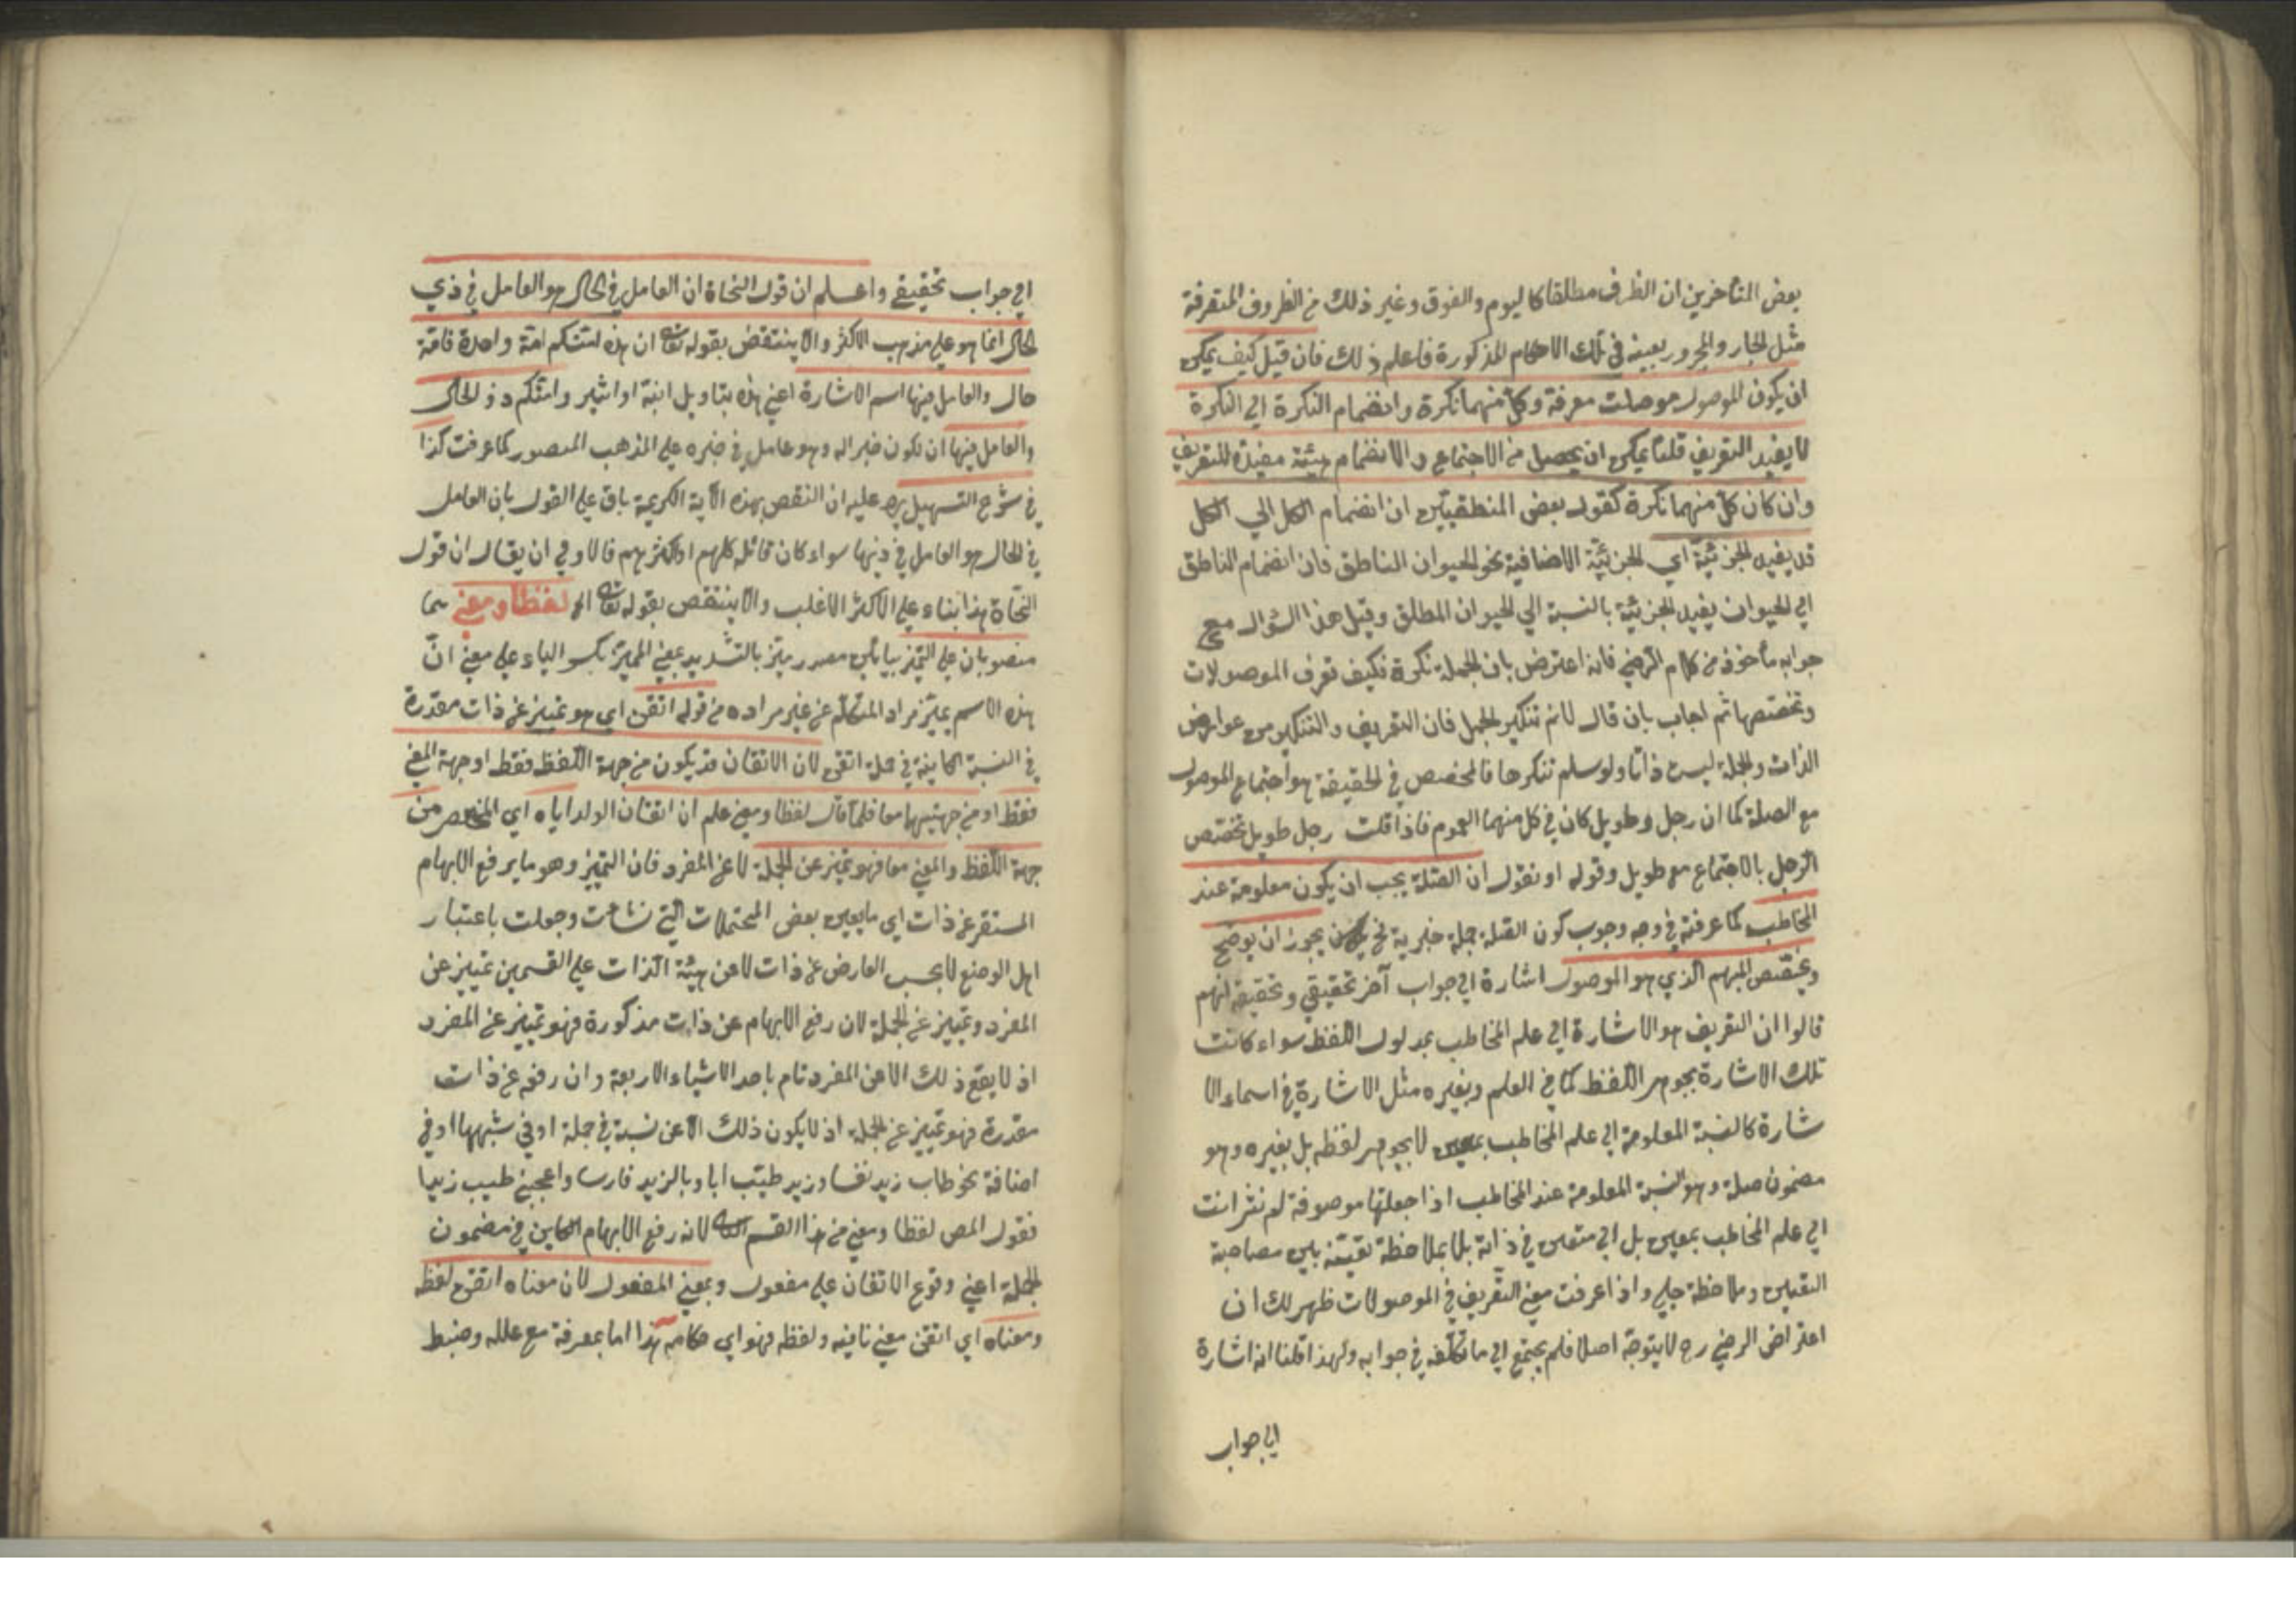 بعض المتأخرين ان الظرف مطلقا كاليوم والفوق وغير ذلك من الظروف المتصرفة
مثل الجار والمجرور بعينه في تلك الاحكام المذكورة فاعلم ذلك فان قيل كيف يمكن
ان يكون الموصول مع صلته معرفة وكل منهما نكرة وانضمام النكرة الي النكرة
لا يفيد التعريف قلنا يمكن ان يحصل من الاجتماع والانضمام هيئة مفيدة للتعريف
وان كان كل منهما نكرة كقول بعض المنطقيين ان انضمام الكل الي الكل
قد يفيد الجزئية اي الجزئية الاضافية نحو الحيوان الناطق فان انضمام الناطق
الي الحيوان يفيد الجزئية بالنسبة الي الحيوان المطلق وقيل هذا السؤال مع
جوابه مأخوذ من كلام الرضي فانه اعترض بان الجملة نكرة فكيف تعرف الموصولات
وتخصصها ثم اجاب بان قال لانم تنكير الجمل فان التعريف والتنكير من عوارض
الذات والجملة ليست ذاتا ولو سلم تنكرها فالمخصص في الحقيقة هو اجتماع الموصول
مع الصلة كما ان رجل وطويل كان في كل منهما العموم فاذا قلت رجل طويل تخصص
الرجل بالاجتماع مع طويل وقوله او نقول ان الصلة يجب ان يكون معلومة عند
المخاطب كما عرفته في وجه وجوب كون الصلة جملة خبرية يجوز ان يوضح
ويخصص المبهم الذي هو الموصول اشارة الي جواب آخر تحقيقي وتحقيقه انهم
قالوا ان التعريف هو الاشارة الي علم المخاطب بمدلول اللفظ سواء كانت
تلك الاشارة بجوهر اللفظ كما في العلم وبغيره مثل الاشارة في اسماء الا
شارة كالنسبة المعلومة الي علم المخاطب بمعين لا بجوهر لفظه بل بغيره وهو
مضمون صلة وهو النسبة المعلومة عند المخاطب اذا جعلتها موصوفة لم نشر انت
الي علم المخاطب بمعين بل الي متعين في ذاته بلا ملاحظة تعينه بين مصاحبة
التعين وملاحظة جلي واذا عرفت معني التعريف في الموصولات ظهر لك ان
اعتراض الرضي رح لا يتوجه اصلا فلم يحتج الي ما تكلفه في جوابه ولهذا قلنا انه اشارة
الي جواب
الي جواب تحقيقي واعلم ان قول النحاة ان العامل في الحال هو العامل في ذي
الحال انما هو علي مذهب الاكثر والا ينتقض بقوله تعالى ان هذه امتكم امة واحدة فامة
حال والعامل فيها اسم الاشارة اعني هذه بتاويل انبه او اشير وامتكم ذو الحال
والعامل فيها ان لكون خبرا له وهو عامل في خبره علي المذهب المنصور كما عرفت كذا
في شرح التسهيل يرد عليه ان النقض بهذه الآية الكريمة باق علي القول بان العامل
في الحال هو العامل في ذيها سواء كان قائله كلهم او اكثرهم فالاولي ان يقال ان قول
النحاة هذا بناء علي الاكثر الاغلب والا ينتقض بقوله تعالى الخ لفظا ومعني هما
منصوبان علي التميز بيائين مصدر ميز بالتشديد بمعني المميز بكسر الياء علي معني ان
هذه الاسم يميز مراد المتكلم عن غير مراده من قوله اتقن اي هو تمييز عن ذات مقدرة
في النسبة الكاينة في جملة اتقن لان الاتقان قد يكون من جهة اللفظ فقط او جهة المعني
فقط او من جهتيهما معا فلما قال لفظا ومعني علم ان اتقان الولد اياه اي المختصر من
جهة اللفظ والمعني معا فهو تميز عن الجملة لا عن المفرد فان التميز وهو ما يرفع الابهام
المستقر عن ذات اي ما يعين بعض المحتملات التي نشات وجعلت باعتبار
اهل الوضع لا بحسب العارض عن ذات لا عن هيئة الذات علي القسمين تمييز عن
المفرد وتمييز عن الجملة لان رفع الابهام عن ذات مذكورة فهو تمييز عن المفرد
اذ لا يقع ذلك الا عن المفرد تام باحد الاشياء الاربعة وان رفعه عن ذات
مقدرة فهو تمييز عن الجملة اذ لا يكون ذلك الا عن نسبة في جملة او في شبهها او في
اضافة نحو طاب زيد نفسا وزيد طيب ابا ويا لزيد فارسا واعجبني طيب زيد ابا
فقول المص لفظا ومعني من هذا القسم الثاني لانه رفع الابهام الكاين في مضمون
الجملة اعني وقوع الاتقان علي مفعول وبمعني المفعول لان معناه اتقن لفظه
ومعناه اي اتقن معني تاليفه ولفظه فهو اي هذا اما بمعرفة مع علله وضبط